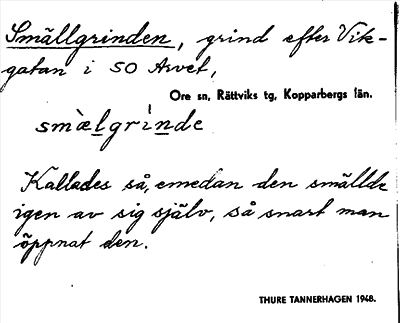 Smällgrinden, grind efter Vik-
gatan i SO Arvet,
Ore sn, Rättviks tg, Kopparbergs län.
smæ̀lgrìnde
Kallades så, emedan den smällde
igen av sig själv, så snart man
öppnat den.
THURE TANNERHAGEN 1948.